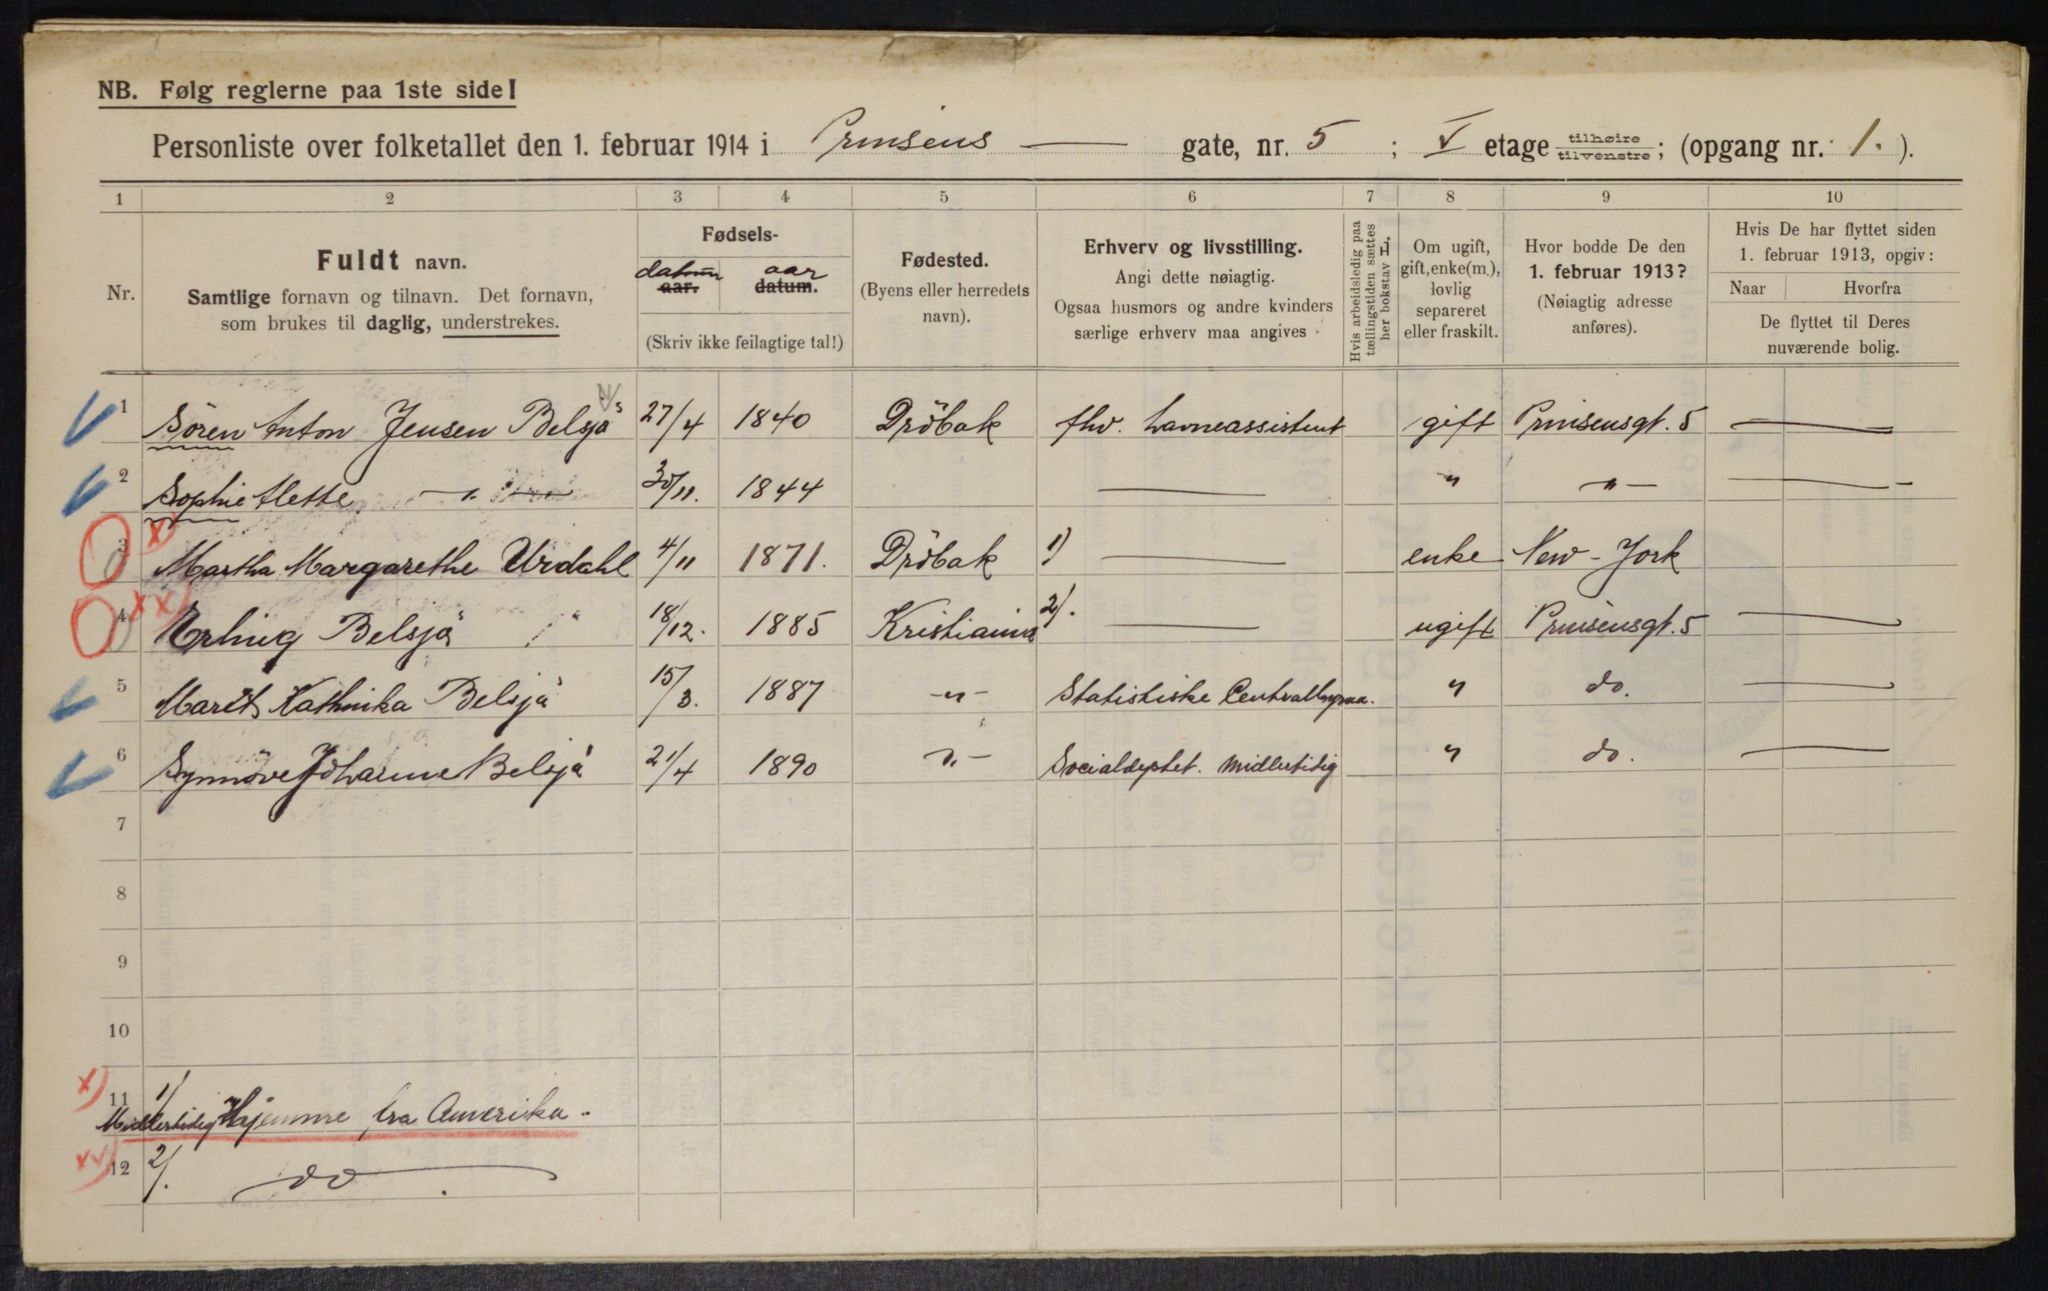 NB. Følg reglerne paa 1ste side!
Personliste over folketallet den 1. februar 1914 i Prinsens gate, nr. 5 ; V etage tilhøire / tilvenstre ; (opgang nr. 1. ).
1 2 3 4 5 6 7 8 9 10
Nr.
Fuldt navn.
Samtlige fornavn og tilnavn. Det fornavn,
som brukes til daglig, understrekes.
Fødsels-
datum aar
aar. datum.
(Skriv ikke feilagtige tal!)
Fødested.
(Byens eller herredets
navn).
Erhverv og livsstilling.
Angi dette nøiagtig.
Ogsaa husmors og andre kvinders
særlige erhverv maa angives
Hvis arbeidsledig paa
tællingstiden sættes
her bokstav L.
Om ugift,
gift, enke(m.),
lovlig
separeret
eller fraskilt.
Hvor bodde De den
1. februar 1913?
(Nøiagtig adresse
anføres).
Hvis De har flyttet siden
1. februar 1913, opgiv:
Naar Hvorfra
De flyttet til Deres
nuværende bolig.
1 Sören Anton Jensen Belsjö 27/4 1840 Dröbak fhv. Havneassistent gift Prinsensgt. 5 —
2 Sophie Alette — " — 30/11. 1844 — " — " — —
3 x) Martha Margarethe Urdahl 4/11 1871. Dröbak 1) — enke New-York
4 xx) Erling Belsjö 18/12. 1885 Kristiania 2). — ugift Prinsensgt. 5 —
5 Marit Kathinka Belsjö 15/3. 1887 — " — Statistiske Centralbyraa. " do. —
6 Synnöve Johanne Belsjö 21/4 1890 — " — Socialdeptet. Midlertidig " do. —
7
8
9
10
x) 11 1/
Midlertidig Hjemme fra Amerika.
xx) 12 2/. do.